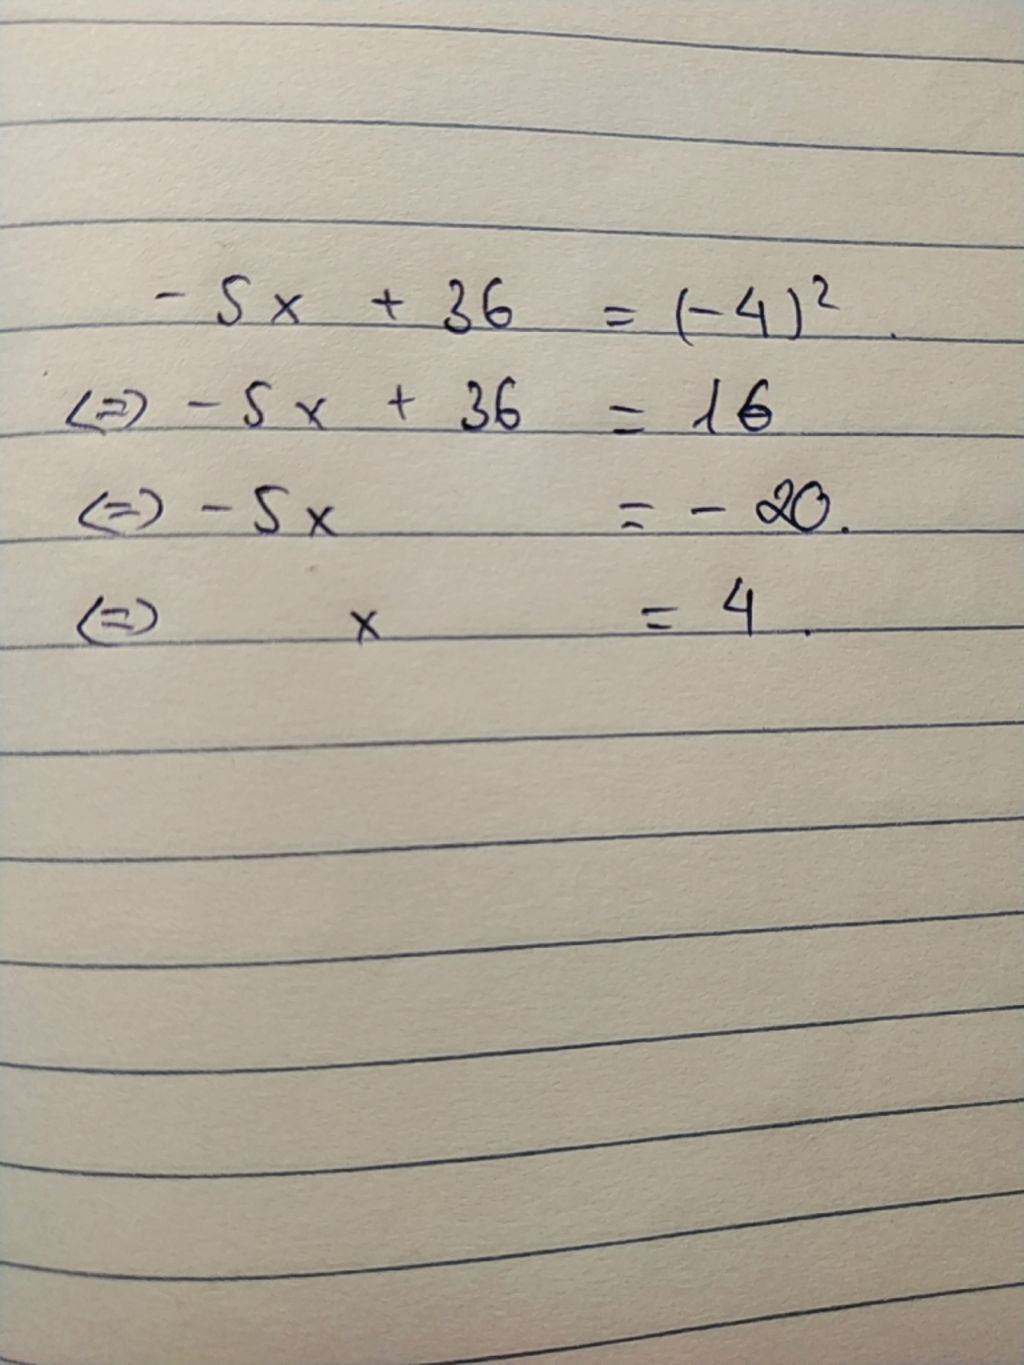 -5x + 36 = (-4)².
<=> -5x + 36 = 16
<=> -5x = -20.
<=> x = 4.